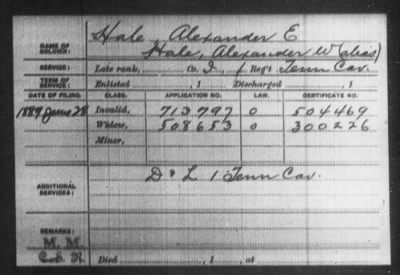 Hale, Alexander E
NAME OF SOLDIER: Hale, Alexander W (alias)
SERVICE: Late rank, Co. I, 1 Reg't Tenn Cav.
TERM OF SERVICE: Enlisted , 1 Discharged , 1
DATE OF FILING. CLASS. APPLICATION NO. LAW. CERTIFICATE NO.
1889 June 28 Invalid, 713797 0 504469
Widow, 508653 0 300226
Minor,
ADDITIONAL SERVICES: D & L 1 Tenn Cav.
REMARKS:
M. M.
C. S. R. Died , 1 , at